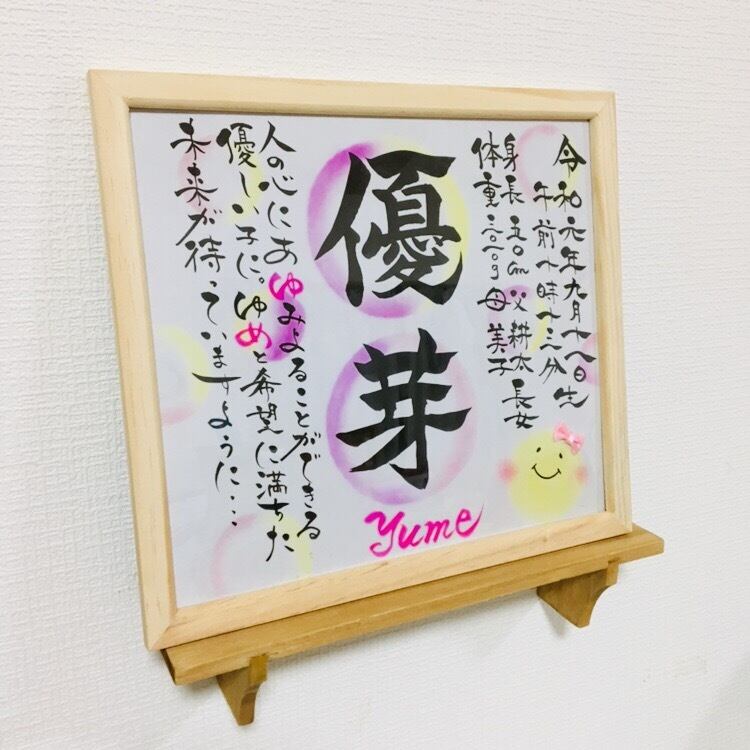 令和元年九月十八日生
午前十時十三分
身長 五〇cm 父 耕太 長女
体重 三〇二〇g 母 美子
優芽
yume
人の心にあゆみよることができる
優しい子に。ゆめと希望に満ちた
未来が待っていますように…